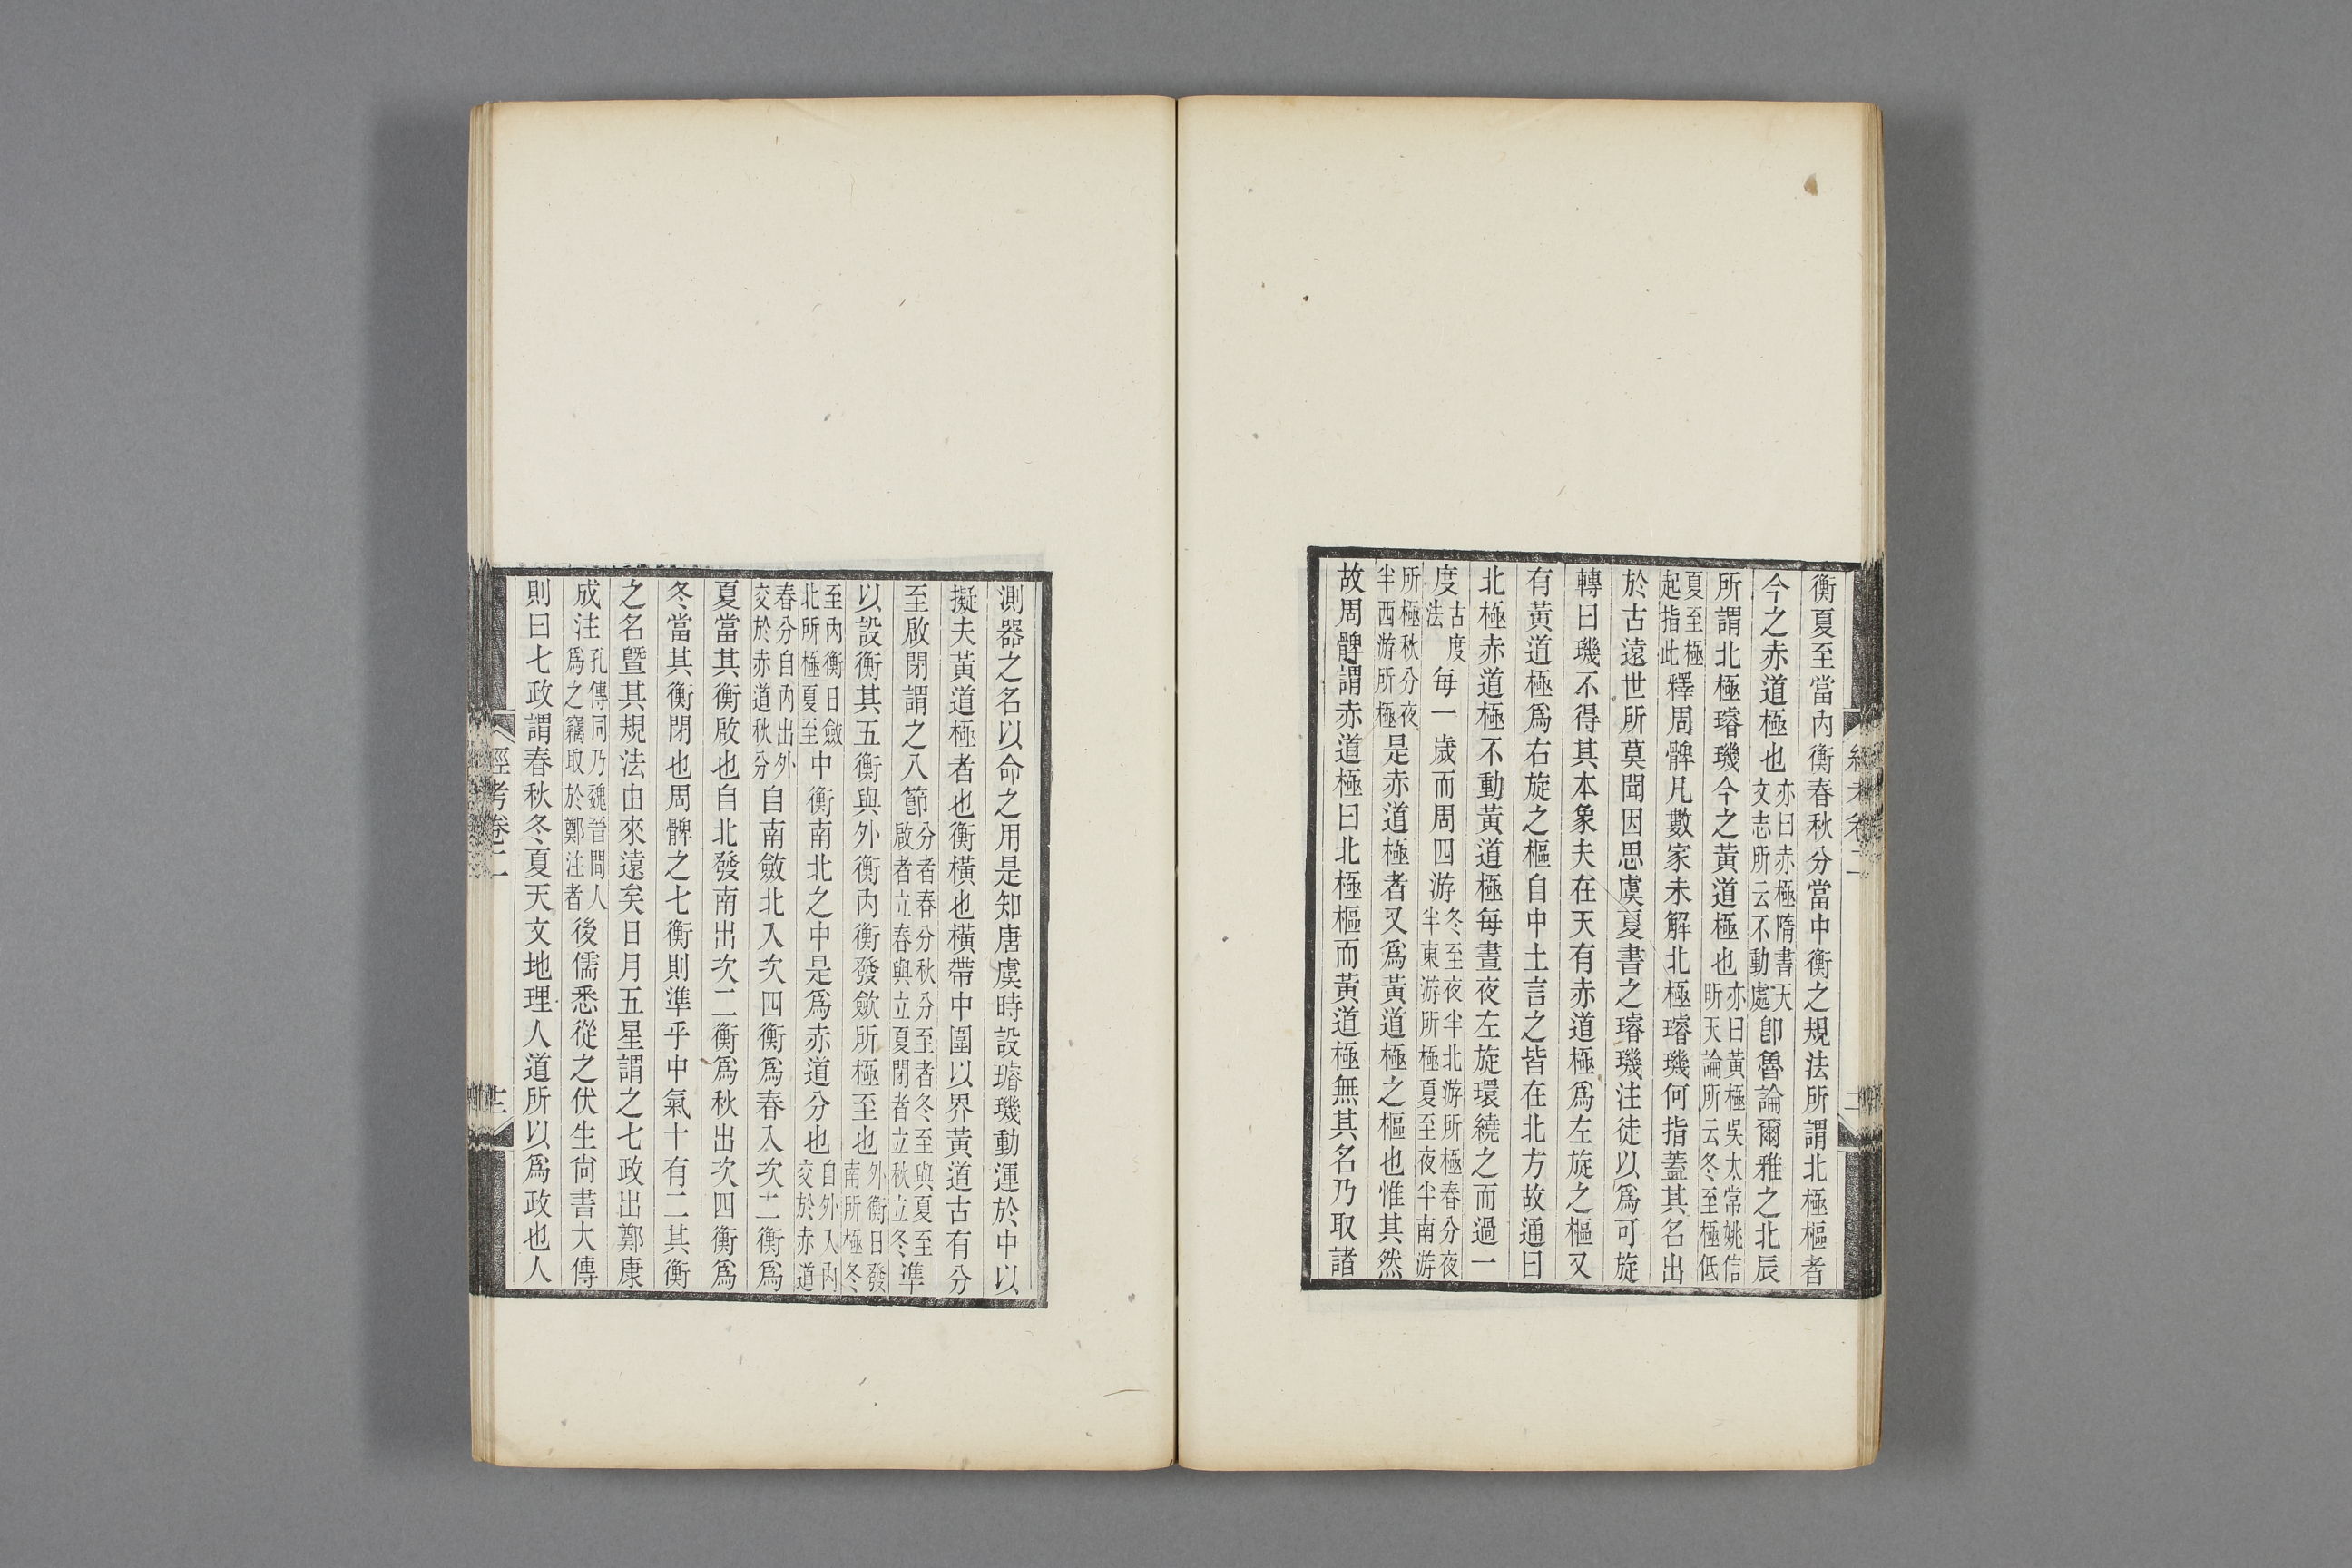 衡夏至當內衡春秋分當中衡之規法所謂北極樞者
今之赤道極也亦曰赤極隋書天文志所云不動處卽魯論爾雅之北辰
所謂北極璿璣今之黃道極也亦曰黃極吳太常姚信昕天論所云冬至極低
夏至極起指此釋周髀凡數家未解北極璿璣何指蓋其名出
於古遠世所莫聞因思虞夏書之璿璣注徒以爲可旋
轉曰璣不得其本象夫在天有赤道極爲左旋之樞又
有黃道極爲右旋之樞自中土言之皆在北方故通曰
北極赤道極不動黃道極每晝夜左旋環繞之而過一
度古度法每一歲而周四游冬至夜半北游所極春分夜半東游所極夏至夜半南游
所極秋分夜半西游所極是赤道極者又爲黃道極之樞也惟其然
故周髀謂赤道極曰北極樞而黃道極無其名乃取諸
測器之名以命之用是知唐虞時設璿璣動運於中以
擬夫黃道極者也衡橫也橫帶中圍以界黃道古有分
至啟閉謂之八節分者春分秋分至者冬至與夏至啟者立春與立夏閉者立秋立冬準
以設衡其五衡與外衡內衡發斂所極至也外衡日發南所極冬
至內衡日斂北所極夏至中衡南北之中是爲赤道分也自外入內交於赤道
春分自內出外交於赤道秋分自南斂北入次四衡爲春入次二衡爲
夏當其衡啟也自北發南出次二衡爲秋出次四衡爲
冬當其衡閉也周髀之七衡則準乎中氣十有二其衡
之名暨其規法由來遠矣日月五星謂之七政出鄭康
成注孔傳同乃魏晉間人爲之竊取於鄭注者後儒悉從之伏生尙書大傳
則曰七政謂春秋冬夏天文地理人道所以爲政也人
經考卷二